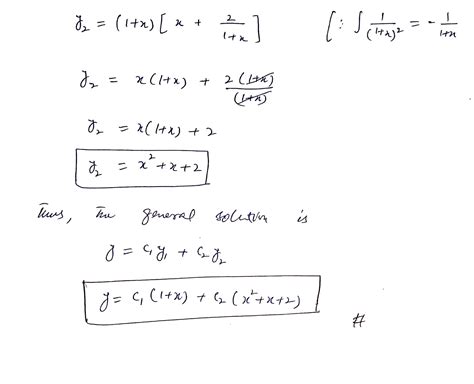 y₂ = (1+x) [ x + 2/(1+x) ] [∵ ∫ 1/(1+x)² = - 1/(1+x)
y₂ = x(1+x) + 2(1+x)/(1+x)
y₂ = x(1+x) + 2
y₂ = x² + x + 2
Thus, The general solution is
y = c₁y₁ + c₂y₂
y = c₁(1+x) + c₂(x²+x+2)
#